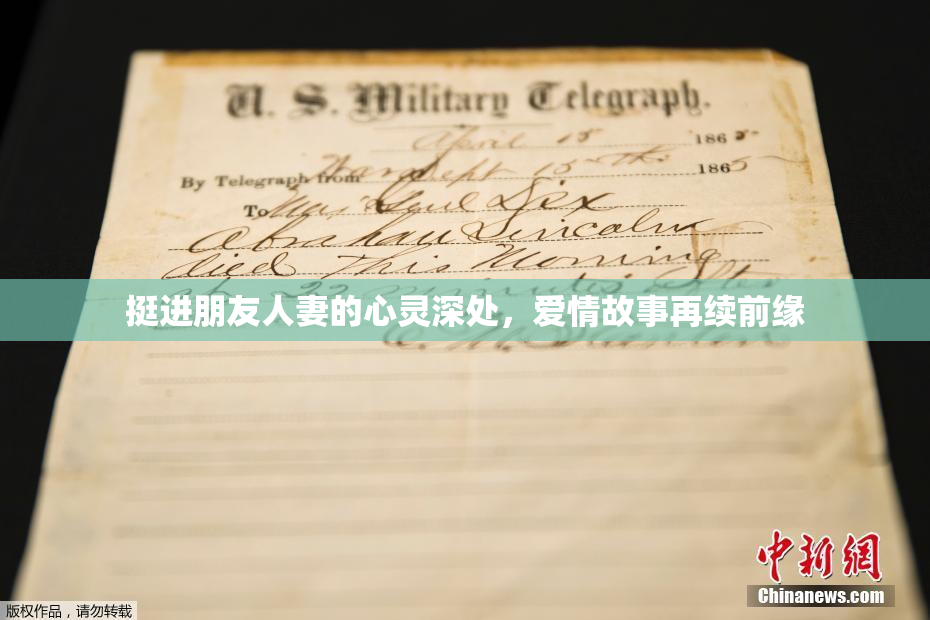 U. S. Military Telegraph.
April 15 1865
By Telegraph from War Dept 15th 1865
To Maj Genl Dix
Abraham Lincoln
died This Morning
at 22 minutes after
挺进朋友人妻的心灵深处，爱情故事再续前缘
E. M. Stanton
中新网
Chinanews.com
版权作品，请勿转载